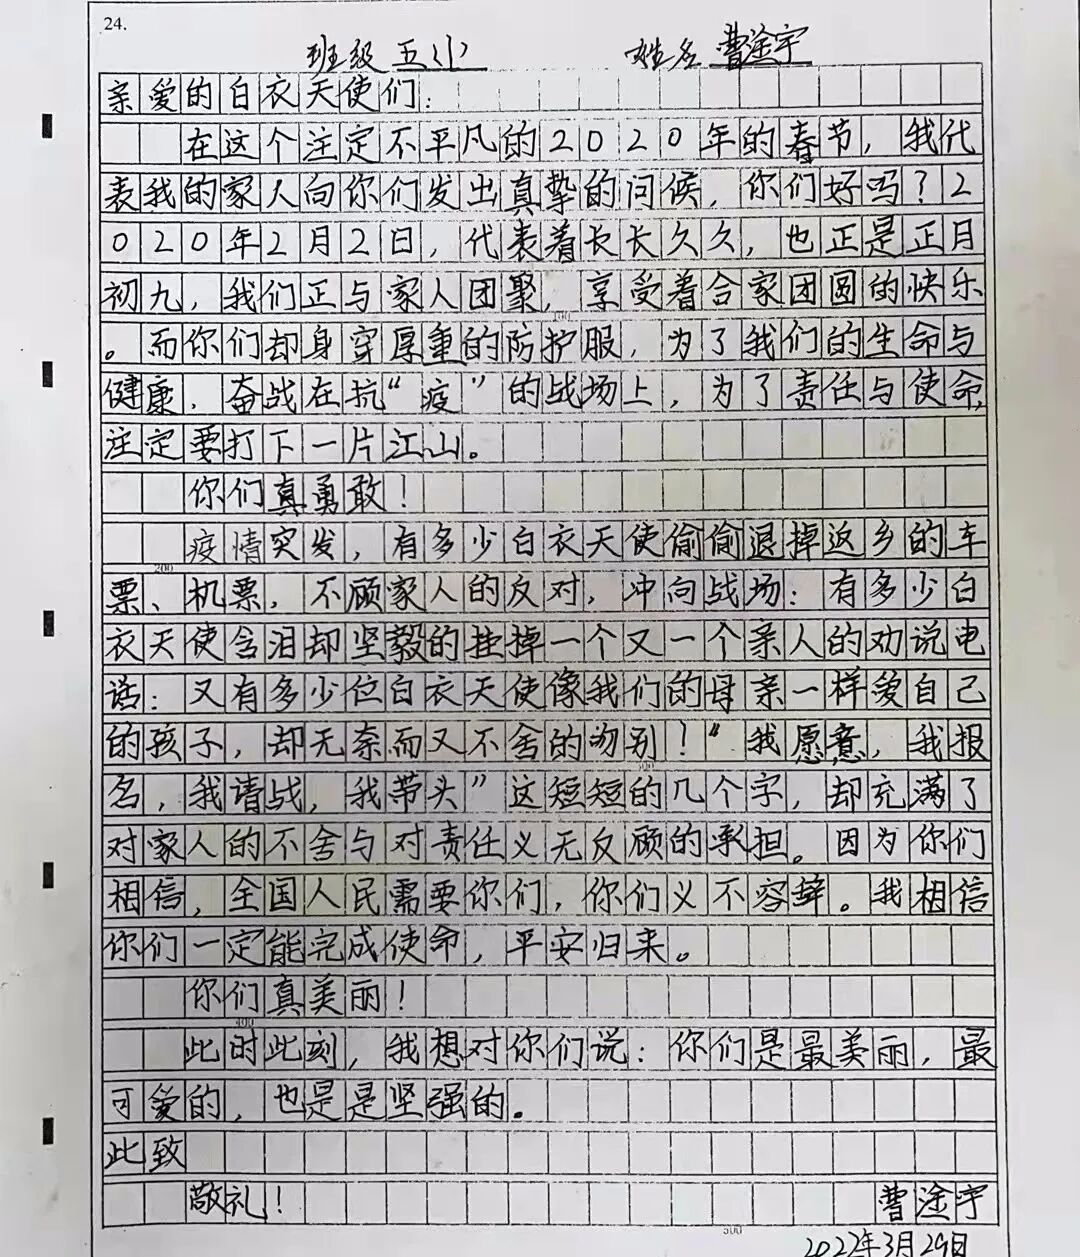 24.
班级 五小 姓名 曹淦宇
亲爱的白衣天使们:
在这个注定不平凡的2020年的春节,我代
表我的家人向你们发出真挚的问候,你们好吗?2
020年2月2日,代表着长长久久,也正是正月
初九,我们正与家人团聚,享受着合家团圆的快乐
。而你们却身穿厚重的防护服,为了我们的生命与
100
健康,奋战在抗“疫”的战场上,为了责任与使命,
注定要打下一片江山。
你们真勇敢!
疫情突发,有多少白衣天使偷偷退掉返乡的车
200
票、机票,不顾家人的反对,冲向战场:有多少白
衣天使含泪却坚毅的挂掉一个又一个亲人的劝说电
话:又有多少位白衣天使像我们的母亲一样爱自己
的孩子,却无奈而又不舍的吻别!“我愿意,我报
300
名,我请战,我带头”这短短的几个字,却充满了
对家人的不舍与对责任义无反顾的承担。因为你们
相信,全国人民需要你们,你们义不容辞。我相信
你们一定能完成使命,平安归来。
你们真美丽!
400
此时此刻,我想对你们说:你们是最美丽,最
可爱的,也是是坚强的。
此致
敬礼! 曹淦宇
500
2022年3月29日